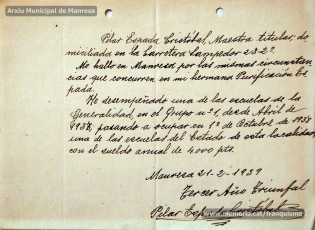 Arxiu Municipal de Manresa
Pilar Espada Cristóbal, Maestra titular, do-
miciliada en la Carretera Sampedor 23 2º.
Me hallo en Manresa, por las mismas circunstan-
cias que concurren en mi hermana Purificación Es-
pada.
He desempeñado una de las escuelas de la
Generalidad, en el Grupo nº 1, desde Abril de
1938, pasando a ocupar en 1º de Octubre de 1938
una de las escuelas del Estado de esta localidad,
con el sueldo anual de 4.000 pts.
Manresa 21-2-1939
Tercer Año Triunfal
Pilar Espada Cristóbal
www.memoria.cat/franquisme